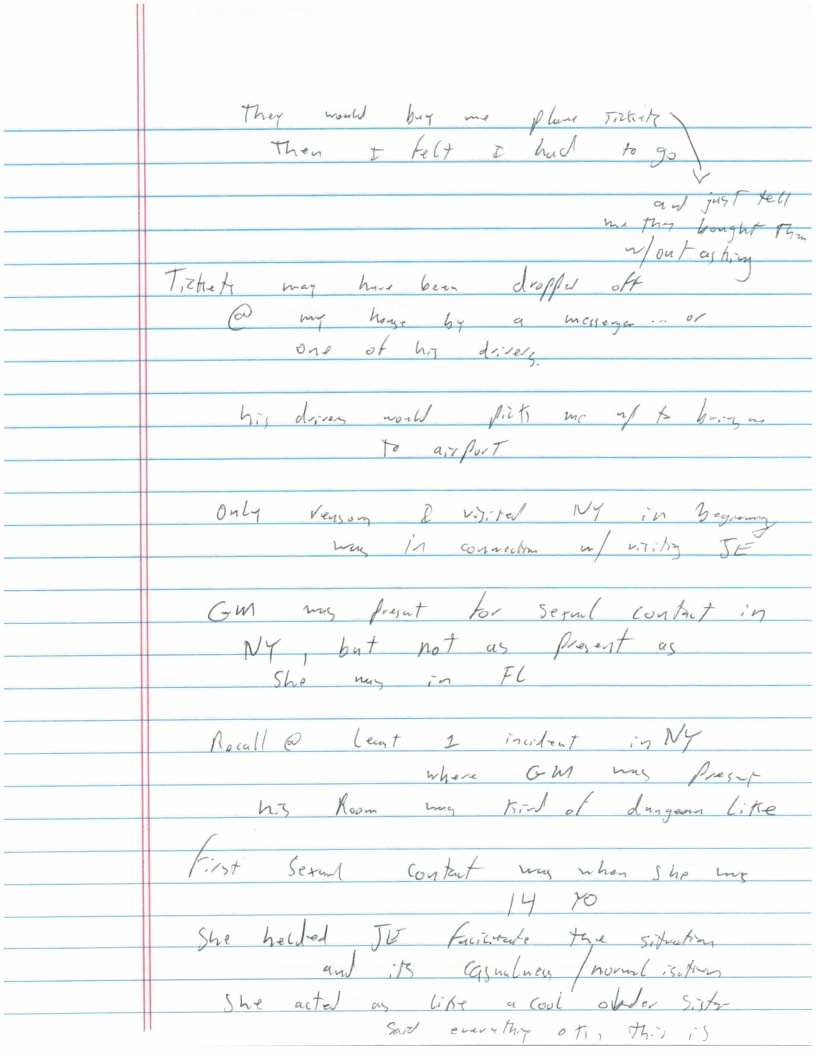 They would buy me plane Tickets
Then I felt I had to go
and just tell
me they bought them
w/out asking
Tickets may have been dropped off
@ my house by a messenger ... or
one of his drivers.
his drivers would pick me up to bring me
to airport
Only reason I visited NY in Beginning
was in connection w/ visiting JE
GM was present for sexual contact in
NY, but not as present as
She was in FL
Recall @ least 1 incident in NY
where GM was present
his Room was kind of dungeon like
First Sexual contact was when she was
14 YO
She helped JE facilitate the situation
and its casualness / normalization
She acted as like a cool older sister
said everything ok, this is